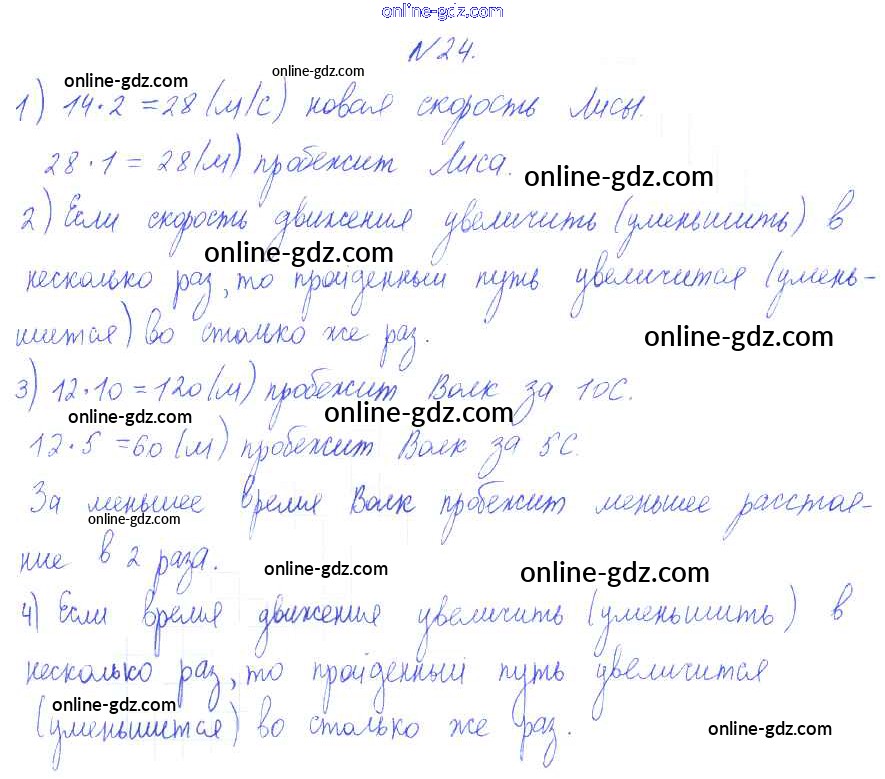 online-gdz.com
№24.
online-gdz.com online-gdz.com
1) 14·2=28(м/с) новая скорость Лисы.
28·1=28(м) пробежит Лиса.
online-gdz.com
2) Если скорость движения увеличить (уменьшить) в
online-gdz.com
несколько раз, то пройденный путь увеличится (умень-
шится) во столько же раз.
online-gdz.com
3) 12·10=120(м) пробежит Волк за 10с.
online-gdz.com online-gdz.com
12·5=60(м) пробежит Волк за 5с.
За меньшее время Волк пробежит меньшее расстоя-
online-gdz.com
ние в 2 раза.
online-gdz.com online-gdz.com
4) Если время движения увеличить (уменьшить) в
несколько раз, то пройденный путь увеличится
online-gdz.com
(уменьшится) во столько же раз.
online-gdz.com